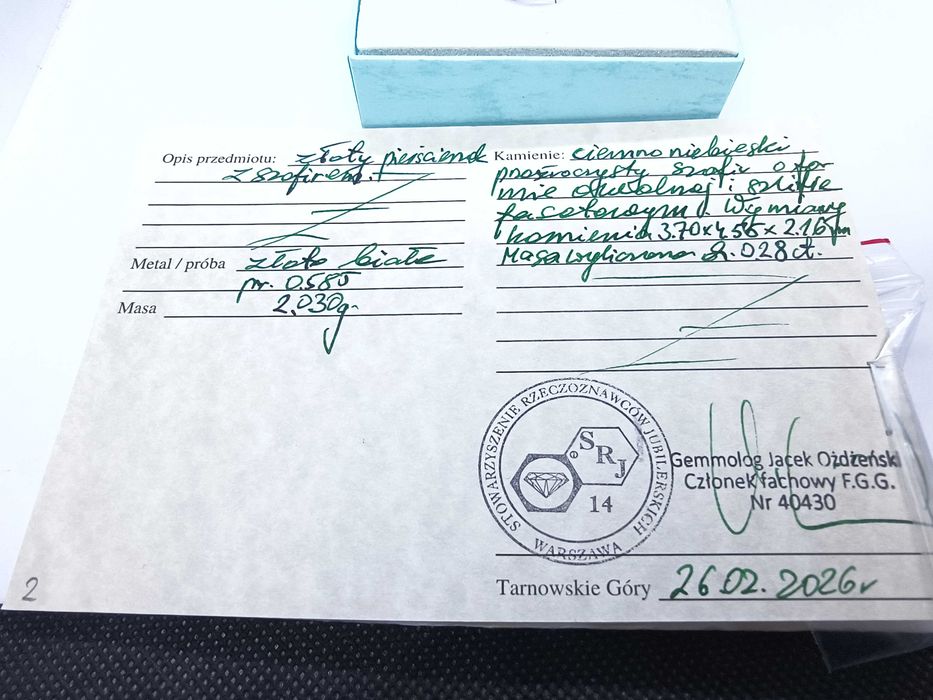 Opis przedmiotu: złoty pierścionek
z szafirem.
Metal / próba złoto białe
pr. 0.585
Masa 2.030g.
Kamienie: ciemno niebieski,
przeźroczysty szafir o for
mie owalnej i szlifie
fasetowym. Wymiary
kamienia 3.70x4.55x2.16mm
Masa wyliczona ok. 0.28 ct.
STOWARZYSZENIE RZECZOZNAWCÓW JUBILERSKICH
WARSZAWA
SRJ
14
Gemmolog Jacek Ożdżeński
Członek fachowy F.G.G.
Nr 40430
Tarnowskie Góry 26.02.2026r
2